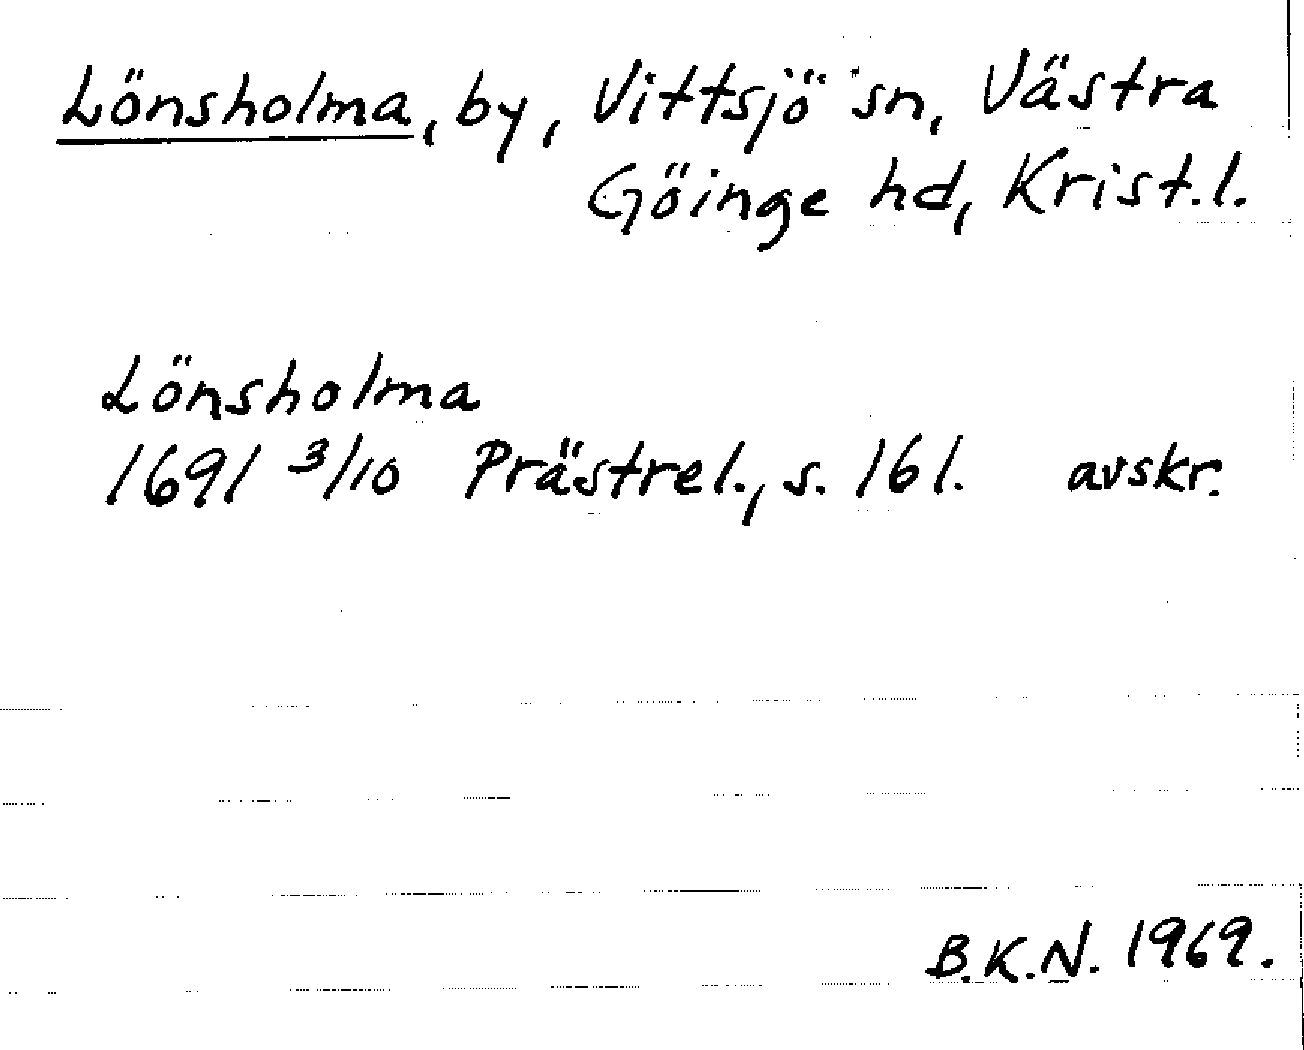 Lönsholma, by, Vittsjö sn, Västra
Göinge hd, Krist.l.
Lönsholma
1691 3/10 Prästrel., s. 161. avskr.
B.K.N. 1969.